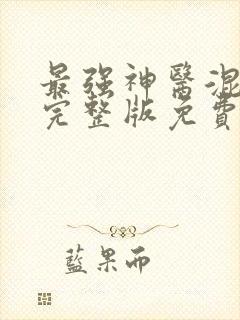 最强神醫混
完整版免費
藍果而